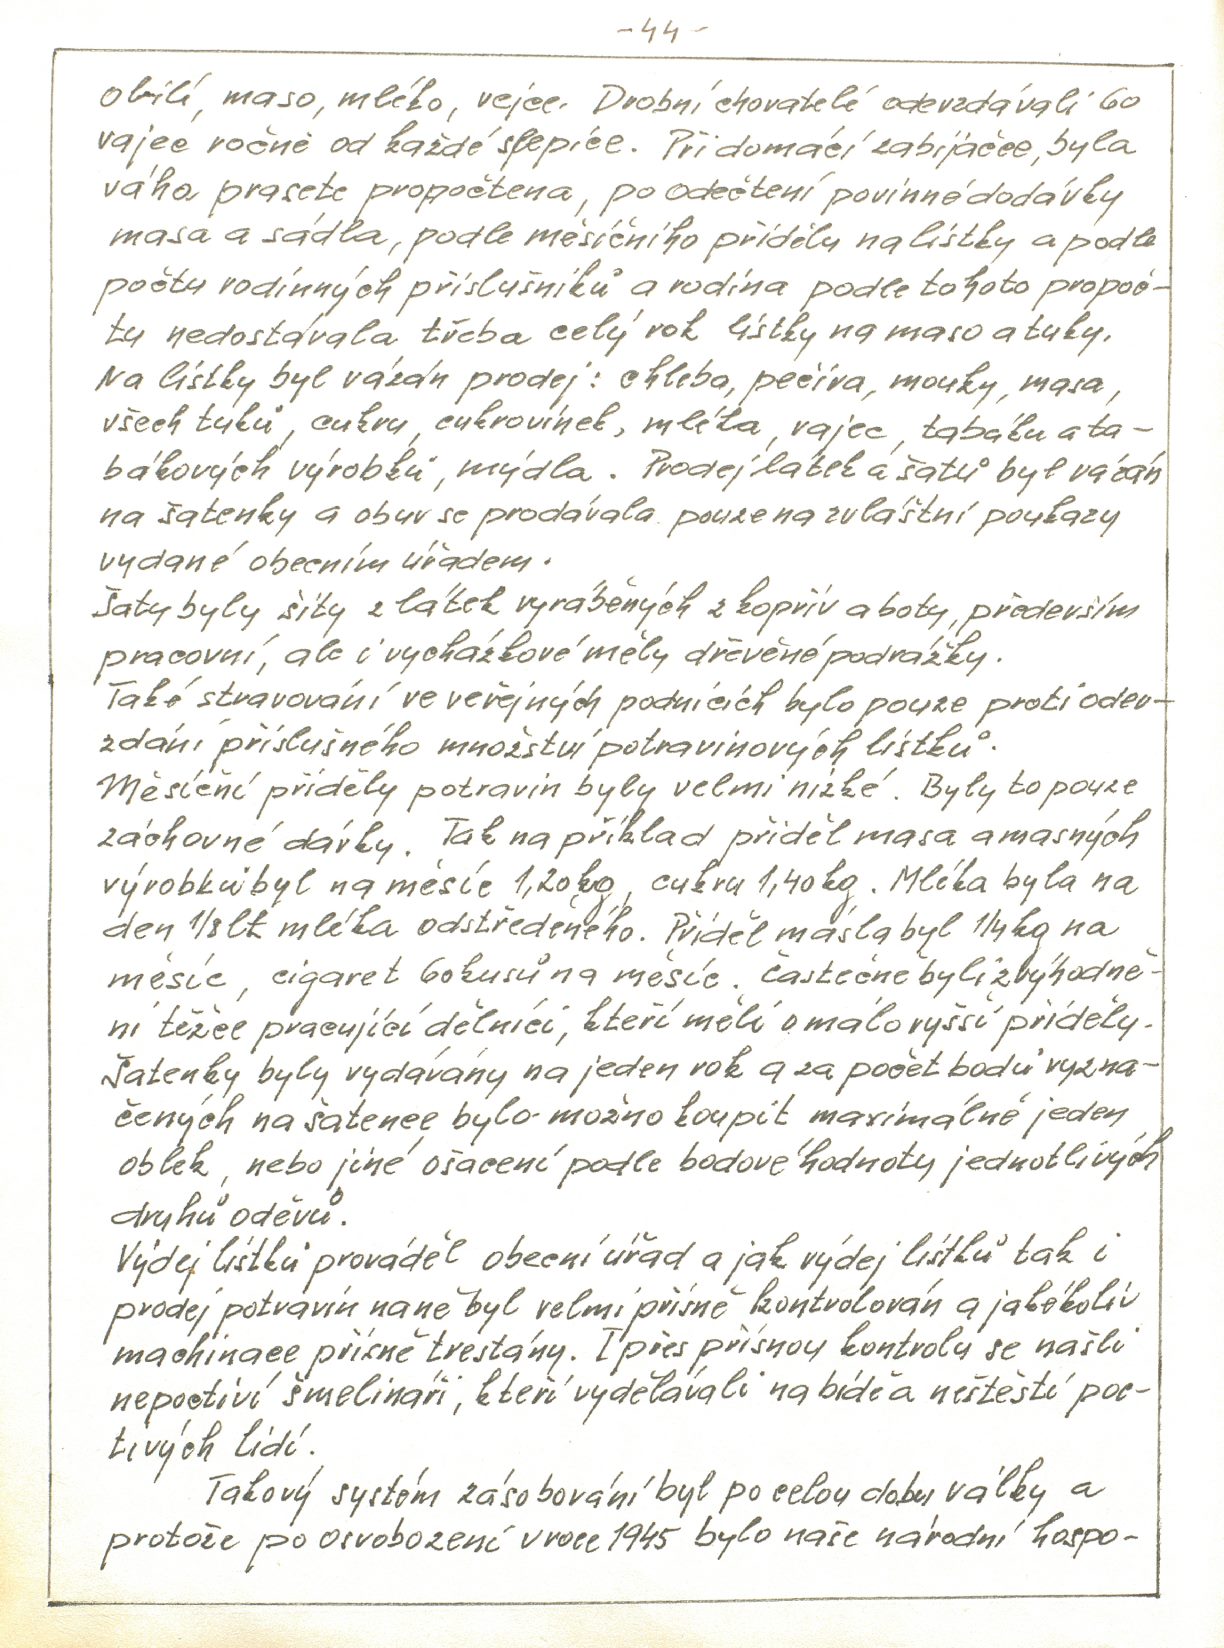 -44-
obilí, maso, mléko, vejce. Drobní chovatelé odevzdávali 60
vajec ročně od každé slepice. Při domácí zabíjačce, byla
váha prasete propočtena, po odečtení povinné dodávky
masa a sádla, podle měsíčního přídělu na lístky a podle
počtu rodinných příslušníků a rodina podle tohoto propoč-
tu nedostávala třeba celý rok lístky na maso a tuky.
Na lístky byl vázán prodej: chleba, pečiva, mouky, masa,
všech tuků, cukru, cukrovinek, mléka, vajec, tabáku a ta-
bákových výrobků, mýdla. Prodej látek a šatů byl vázán
na šatenky a obuv se prodávala pouze na zvláštní poukazy
vydané obecním úřadem.
Šaty byly šity z látek vyráběných z kopřiv a boty, především
pracovní, ale i vycházkové měly dřevěné podrážky.
Také stravování ve veřejných podnicích bylo pouze proti odev-
zdání příslušného množství potravinových lístků.
Měsíční příděly potravin byly velmi nízké. Byly to pouze
záchovné dávky. Tak na příklad příděl masa a masných
výrobků byl na měsíc 1,20 kg, cukru 1,40 kg. Mléka byla na
den 1/8 lt mléka odstředěného. Příděl másla byl 1/4 kg na
měsíc, cigaret 60 kusů na měsíc. Částečně byli zvýhodně-
ni těžce pracující dělníci, kteří měli o málo vyšší příděly.
Šatenky byly vydávány na jeden rok a za počet bodů vyzna-
čených na šatence bylo možno koupit maximálně jeden
oblek, nebo jiné ošacení podle bodové hodnoty jednotlivých
druhů oděvů.
Výdej lístků prováděl obecní úřad a jak výdej lístků tak i
prodej potravin na ně byl velmi přísně kontrolován a jakékoliv
machinace přísně trestány. I přes přísnou kontrolu se našli
nepoctiví šmelináři, kteří vydělávali na bídě a neštěstí poc-
tivých lidí.
Takový systém zásobování byl po celou dobu války a
protože po osvobození v roce 1945 bylo naše národní hospo-